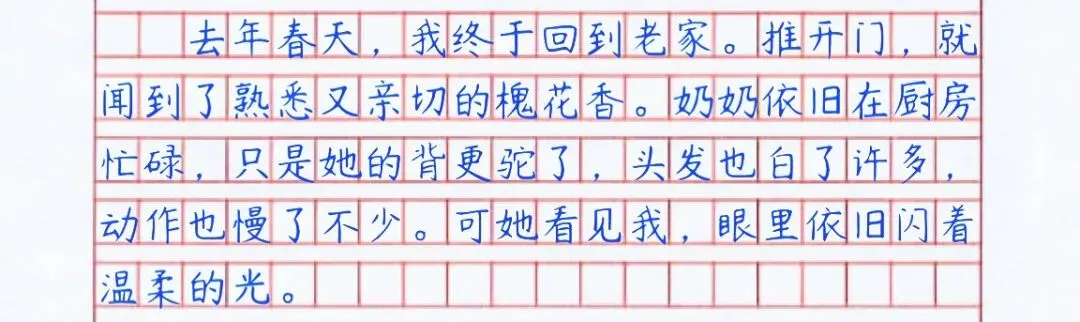 去年春天，我终于回到老家。推开门，就
闻到了熟悉又亲切的槐花香。奶奶依旧在厨房
忙碌，只是她的背更驼了，头发也白了许多，
动作也慢了不少。可她看见我，眼里依旧闪着
温柔的光。